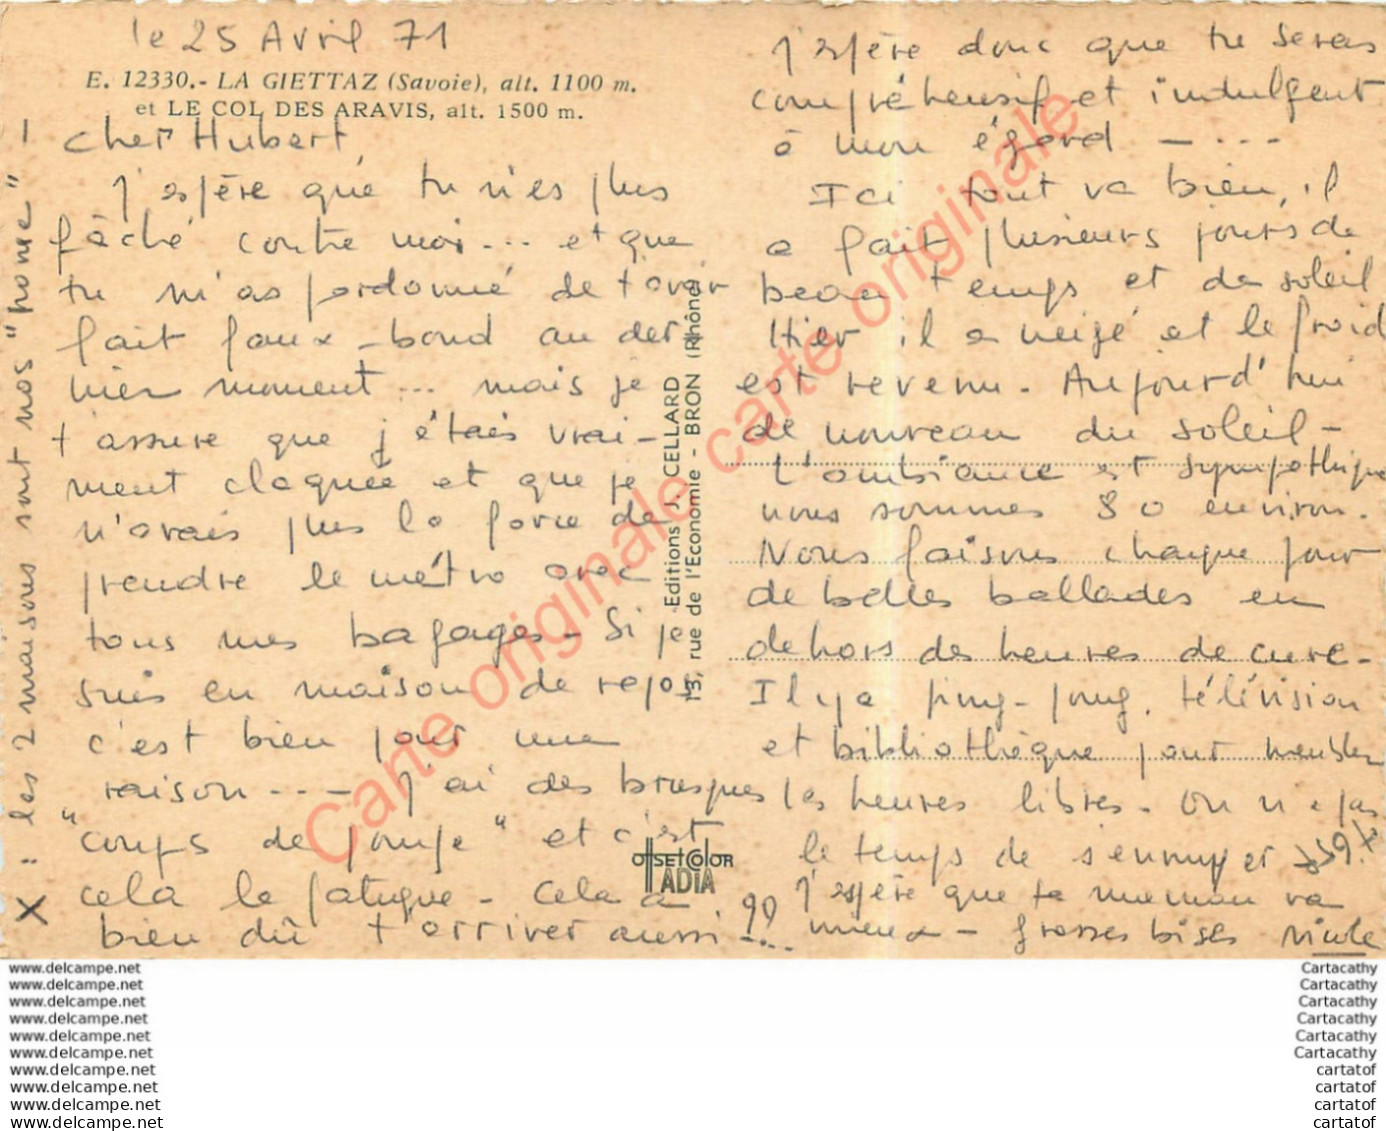 le 25 Avril 71
E. 12330.- LA GIETTAZ (Savoie), alt. 1100 m.
et LE COL DES ARAVIS, alt. 1500 m.
Cher Hubert,
J'espère que tu n'es plus
fâché contre moi... et que
tu m'as pardonné de t'avoir
fait faux-bond au der
nier moment... mais je
t'assure que j'étais vrai-
ment claquée et que je
n'avais plus la force de
prendre le métro avec
tous mes bagages - Si je
suis en maison de repos
c'est bien pour une
raison... - J'ai des brusques
"coups de pompe" et c'est
cela la fatigue - Cela a
bien dû t'arriver aussi ??...
J'espère donc que tu seras
compréhensif et indulgent
à mon égard - ...
Ici tout va bien, il
a fait plusieurs jours de
beau temps et de soleil
Hier il a neigé et le froid
est revenu. Aujourd'hui
de nouveau du soleil -
L'ambiance est sympathique
nous sommes 80 environ.
Nous faisons chaque jour
de belles ballades en
dehors des heures de cure -
Il y a ping-pong, télévision
et bibliothèque pour meubler
les heures libres - On n'a pas
le temps de s'ennuyer
J'espère que ta maman va
mieux - grosses bises Nicole
X : les 2 maisons sont nos "home" !
Editions J. CELLARD
13, rue de l'Economie - BRON (Rhône)
OFFSET COLOR
ADIA
Carte originale carte originale
www.delcampe.net
www.delcampe.net
www.delcampe.net
www.delcampe.net
www.delcampe.net
www.delcampe.net
www.delcampe.net
www.delcampe.net
www.delcampe.net
www.delcampe.net
Cartacathy
Cartacathy
Cartacathy
Cartacathy
Cartacathy
Cartacathy
cartatof
cartatof
cartatof
cartatof